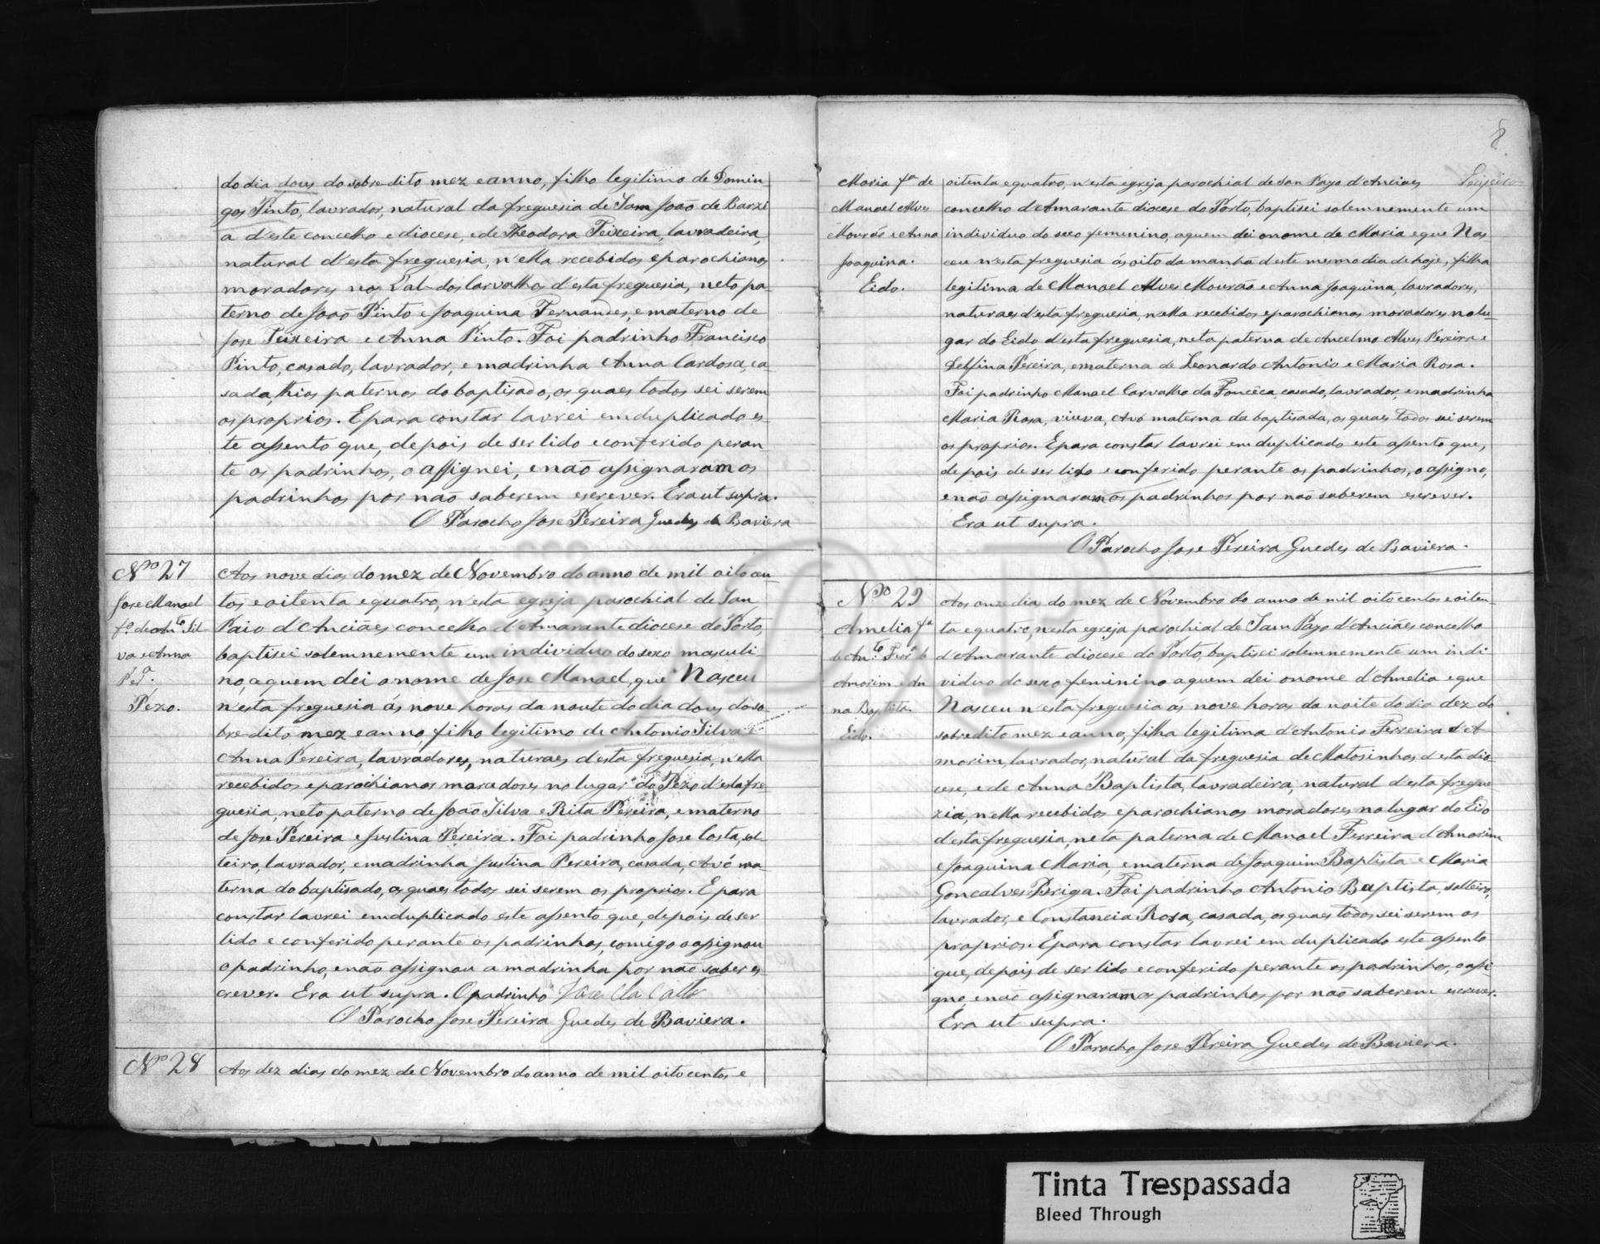 do dia dous do sobredito mez e anno, filho legitimo de Domin
gos Pinto, lavrador, natural da freguesia de Sam João de
a d'este concelho e diocese, e de Theodora Teixeira, lavradeira,
natural d'esta freguesia, n'ella recebidos e parochianos
moradores no dos Carvalhos d'esta freguesia, neto pa
terno de João Pinto e Joaquina Fernandes, e materno de
Jose Teixeira e Anna Pinto. Foi padrinho Francisco
Pinto, casado, lavrador, e madrinha Anna Cardosa, ca
sada, thios paternos do baptisado, os quaes todos sei serem
os proprios. E para constar lavrei em duplicado es
te assento que, depois de ser lido e conferido peran
te os padrinhos, o assignei, e não assignaram os
padrinhos por não saberem escrever. Era ut supra.
O Parocho Jose Pereira Guedes de Baviera
Nº 27
Jose Manoel
fº de Antº Sil
va e Anna
Prª.
Pezo.
Aos nove dias do mez de Novembro do anno de mil oito cen
tos e oitenta e quatro, n'esta egreja parochial de Sam
Paio d'Anciães concelho d'Amarante diocese do Porto,
baptisei solemnemente um individuo do sexo masculi
no, a quem dei o nome de Jose Manoel, que Nasceu
n'esta freguesia ás nove horas da noute do dia dous do so
bredito mez e anno, filho legitimo de Antonio Silva e
Anna Pereira, lavradores, naturaes d'esta freguesia, n'ella
recebidos e parochianos moradores no lugar do Pezo d'esta fre
guesia, neto paterno de João Silva e Rita Pereira, e materno
de Jose Pereira e Justina Pereira. Foi padrinho Jose Costa, sol
teiro, lavrador, e madrinha Justina Pereira, casada, Avó ma
terna do baptisado, os quaes todos sei serem os proprios. E para
constar lavrei em duplicado este assento que, depois de ser
lido e conferido perante os padrinhos, comigo o assignou
o padrinho, e não assignou a madrinha por não saber es
crever. Era ut supra. O padrinho
O Parocho Jose Pereira Guedes de Baviera.
Nº 28
Aos dez dias do mez de Novembro do anno de mil oito centos e
8
Maria fª de
Manoel Alves
Mourão e Anna
Joaquina.
Eido.
oitenta e quatro, n'esta egreja parochial de San Payo d'Anciaes
concelho d'Amarante diocese do Porto, baptisei solemnemente um
individuo do sexo femenino, a quem dei o nome de Maria e que Nas
ceu n'esta freguesia ás oito da manhã d'este mesmo dia de hoje, filha
legitima de Manoel Alves Mourão e Anna Joaquina, lavradores,
naturaes d'esta freguesia, n'ella recebidos e parochianos moradores no lu
gar do Eido d'esta freguesia, neta paterna de Ancelmo Alves Pereira e
Delfina Pereira, e materna de Leonardo Antonio e Maria Rosa.
Foi padrinho Manoel Carvalho da Fonceca, casado, lavrador, e madrinha
Maria Rosa, viuva, Avó materna da baptisada, os quaes todos sei serem
os proprios. E para constar lavrei em duplicado este assento que,
depois de ser lido e conferido perante os padrinhos, o assigno,
e não assignaram os padrinhos por não saberem escrever.
Era ut supra.
O Parocho Jose Pereira Guedes de Baviera.
Nº 29
Amelia fª
de Antº Ferª d
Amorim e An
na Baptista
Eido.
Aos onze dia do mez de Novembro do anno de mil oito centos e oiten
ta e quatro, n'esta egreja parochial de Sam Payo d'Anciães concelho
d'Amarante diocese do Porto, baptisei solemnemente um indi
viduo do sexo feminino a quem dei o nome d'Amelia e que
Nasceu n'esta freguesia ás nove horas da noite do dia dez do
sobredito mez e anno, filha legitima d'Antonio Ferreira d'A
morim, lavrador, natural da freguesia de Matosinhos d'esta dio
cese, e de Anna Baptista, lavradeira, natural d'esta fregue
zia, n'ella recebidos e parochianos moradores no lugar do Eido
d'esta freguesia, neta paterna de Manoel Ferreira d'Amorim
e Joaquina Maria, e materna de Joaquim Baptista e Maria
Goncalves Foi padrinho Antonio Baptista, solteiro,
lavrador, e Constancia Rosa, casada, os quaes todos sei serem os
proprios. E para constar lavrei em duplicado este assento
que, depois de ser lido e conferido perante os padrinhos, o assi
gno, e não assignaram os padrinhos por não saberem escrever.
Era ut supra.
O Parocho Jose Pereira Guedes de Baviera.
Tinta Trespassada
Bleed Through